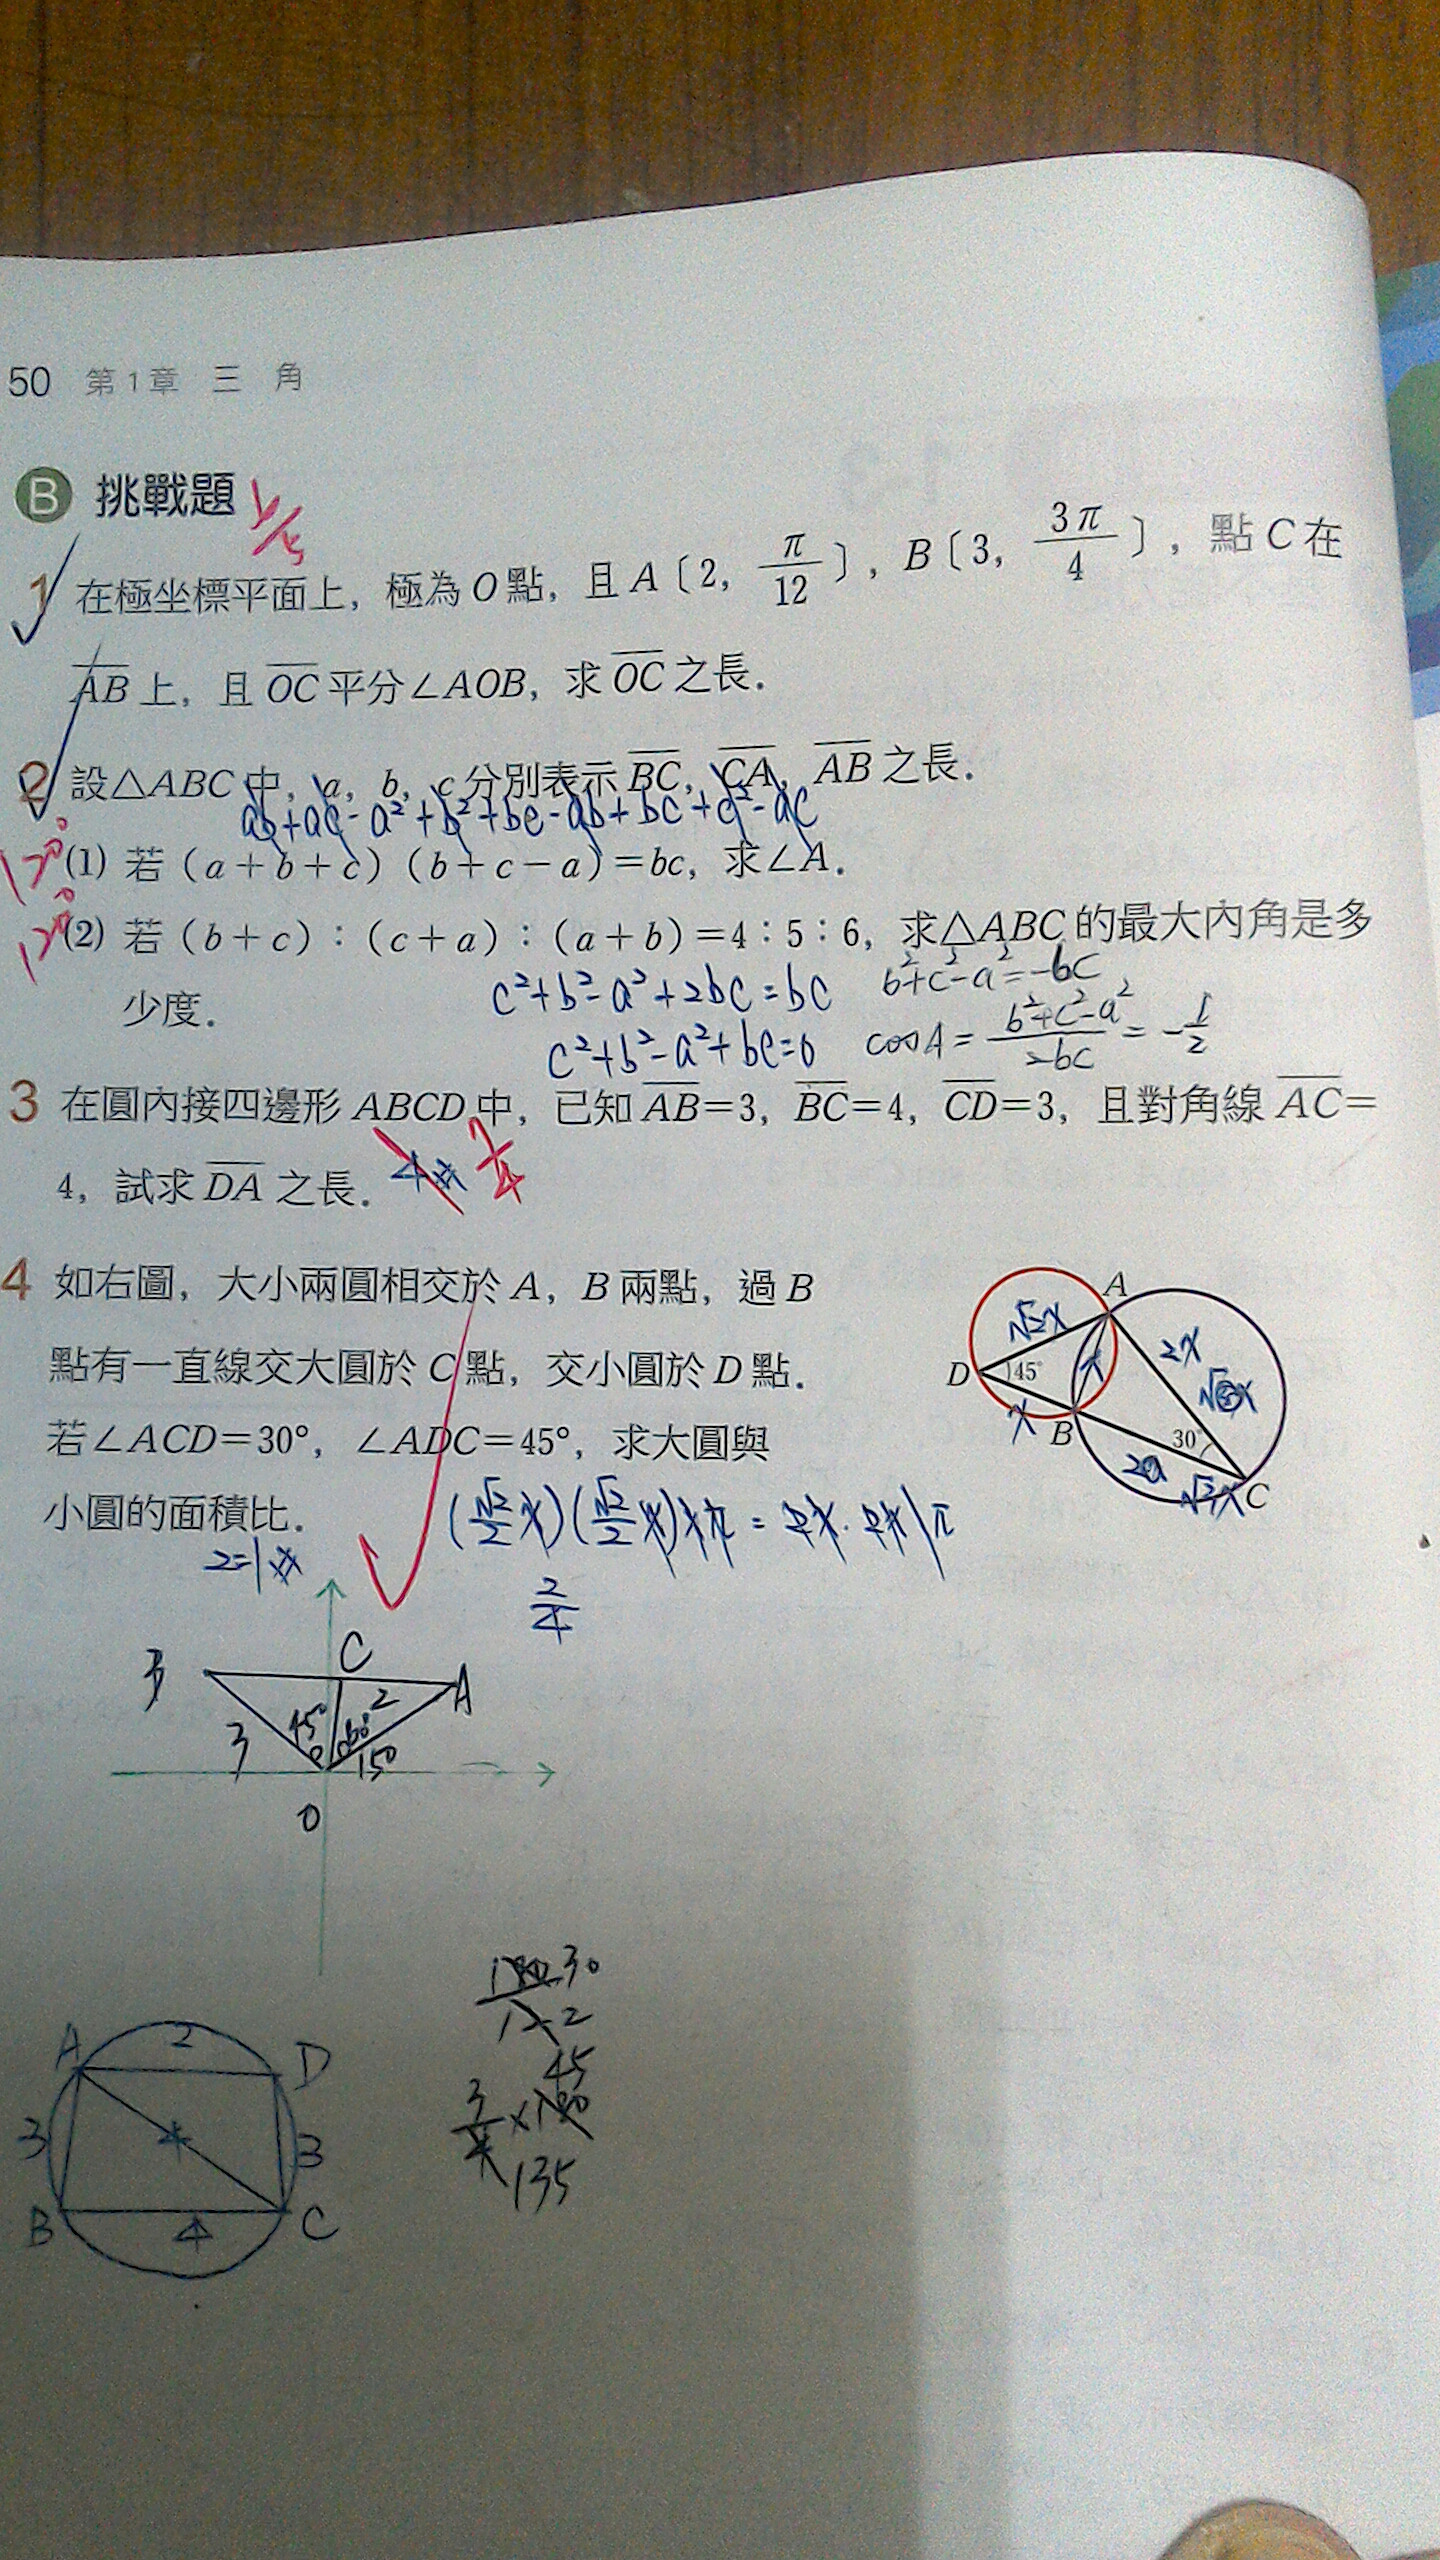 50 第1章 三 角
B 挑戰題
1 在極坐標平面上，極為O點，且A〔2, π/12〕，B〔3, 3π/4〕，點C在
AB上，且OC平分∠AOB，求OC之長．
2 設△ABC中，a，b，c分別表示BC，CA，AB之長．
ab+ac-a²+b²+bc-ab+bc+c²-ac
120°
(1) 若（a+b+c）（b+c-a）=bc，求∠A．
120°
(2) 若（b+c）：（c+a）：（a+b）=4：5：6，求△ABC的最大內角是多
少度．
c²+b²-a²+2bc=bc
b²+c²-a²=-bc
c²+b²-a²+bc=0
cosA = (b²+c²-a²)/2bc = -1/2
3 在圓內接四邊形ABCD中，已知AB=3，BC=4，CD=3，且對角線AC=
4，試求DA之長．
4
7/4
4 如右圖，大小兩圓相交於A，B兩點，過B
點有一直線交大圓於C點，交小圓於D點．
若∠ACD=30°，∠ADC=45°，求大圓與
小圓的面積比．
2=1
A
√2x
2x
D
45°
x
x
B
30°
2a
√2x
C
2/4
B
C
A
3
45°
60°
2
15°
O
30
2
45
3/4 ×180
135
A
2
D
3
4
3
B
4
C